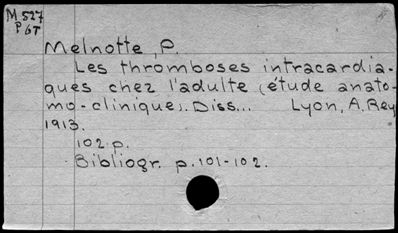 M527
P6T
Melnotte, P.
Les thromboses intracardia-
ques chez l'adulte (étude anato-
mo-clinique). Diss... Lyon, A. Rey
1913.
102 p.
Bibliogr. p. 101-102.